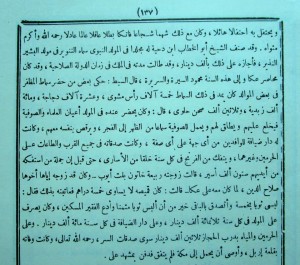 (١٣٧)
ويحتفل به احتفالا هائلا ، وكان مع ذلك شهما شجاعا فاتكا بطلا عاقلا عالما عادلا رحمه الله وأكرم
مثواه . وقد صنف الشيخ أبو الخطاب ابن دحية له مجلدا فى المولد النبوى سماه التنوير فى مولد البشير
النذير ، فأجازه على ذلك بألف دينار ، وقد طالت مدته فى الملك فى زمان الدولة الصلاحية ، وقد كان
محاصر عكا و إلى هذه السنة محمود السيرة والسريرة ، قال السبط : حكى بعض من حضر سماط المظفر
فى بعض الموالد كان يمد فى ذلك السماط خمسة آلاف رأس مشوى ، وعشرة آلاف دجاجة ، ومائة
ألف زبدية ، وثلاثين ألف صحن حلوى ، قال : وكان يحضر عنده فى المولد أعيان العلماء والصوفية
فيخلع عليهم و يطلق لهم و يعمل للصوفية سماعا من الظهر إلى الفجر ، و يرقص بنفسه معهم ، وكانت
له دار ضيافة للوافدين من أى جهة على أى صفة ، وكانت صدقاته فى جميع القرب والطاعات على
الحرمين وغيرهما ، و يتفك من الفرنج فى كل سنة خلقا من الأسارى ، حتى قيل إن جملة من استفكه
من أيديهم ستون ألف أسير ، قالت زوجته ربيعة خاتون بنت أيوب ـ وكان قد زوجه إياها أخوها
صلاح الدين ، لما كان معه على عكا ـ قالت : كان قميصه لا يساوى خمسة دراهم فعاتبته بذلك فقال :
لبسى ثوبا بخمسة وأتصدق بالباقى خير من أن ألبس ثوبا مثمنا وأدع الفقير المسكين ، وكان يصرف
على المولد فى كل سنة ثلاثمائة ألف دينار ، وعلى دار الضيافة فى كل سنة مائة ألف دينار . وعلى
الحرمين والمياه بدرب الحجاز ثلاثين ألف دينار سوى صدقات السر ، رحمه الله تعالى ، وكانت وفاته
بقلعة إربل ، وأوصى أن يحمل إلى مكة فلم يتفق فدفن بمشهد على .